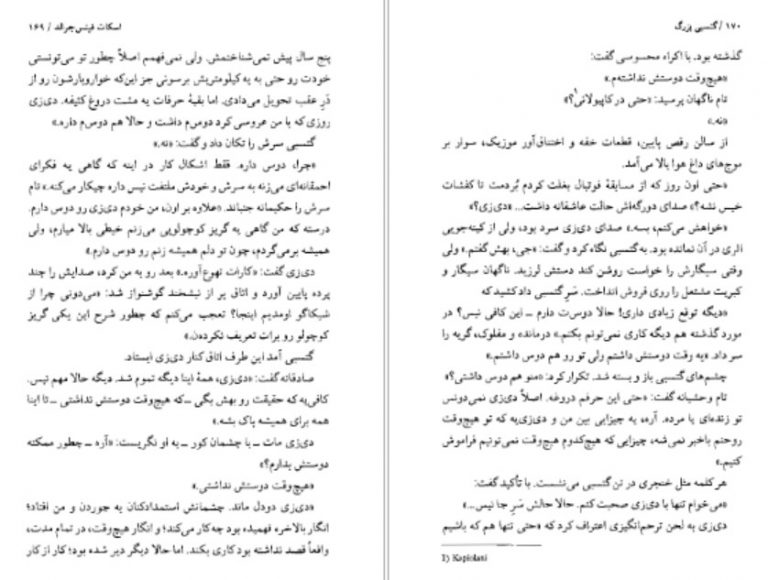 اسکات فیتس‌جرالد / ۱۶۹
پنج سال پیش نمی‌شناختمش. ولی نمی‌فهمم اصلاً چطور تو می‌تونستی
خودت رو حتی به یه کیلومتریش برسونی جز این‌که خواروبارشون رو از
درِ عقب تحویل می‌دادی. اما بقیهٔ حرفات یه مشت دروغ کثیفه. دی‌زی
روزی که با من عروسی کرد دوسم داشت و حالا هم دوسم داره.»
گتسبی سرش را تکان داد و گفت: «نه.»
«چرا، دوس داره. فقط اشکال کار در اینه که گاهی یه فکرای
احمقانه‌ای می‌زنه به سرش و خودش ملتفت نیس داره چیکار می‌کنه.» تام
سرش را حکیمانه جنباند. «علاوه بر اون، من خودم دی‌زی رو دوس دارم.
درسته که من گاهی یه گریز کوچولویی می‌زنم خیطی بالا میارم، ولی
همیشه برمی‌گردم، چون تو دلم همیشه زنم رو دوس دارم.»
دی‌زی گفت: «کارات تهوع‌آوره.» بعد رو به من کرد، صدایش را چند
پرده پایین آورد و اتاق پر از نیشخند گوشنواز شد: «می‌دونی چرا از
شیکاگو اومدیم اینجا؟ تعجب می‌کنم که چطور شرح این یکی گریز
کوچولو رو برات تعریف نکرده‌ن.»
گتسبی آمد این طرف اتاق کنار دی‌زی ایستاد.
صادقانه گفت: «دی‌زی، همهٔ اینا دیگه تموم شد. دیگه حالا مهم نیس.
کافی‌یه که حقیقت رو بهش بگی ــ که هیچ‌وقت دوستش نداشتی ــ تا اینا
همه برای همیشه پاک بشه.»
دی‌زی مات ــ با چشمان کور ــ به او نگریست: «آره ــ چطور ممکنه
دوستش بدارم؟»
«هیچ‌وقت دوستش نداشتی.»
«دی‌زی دودل ماند. چشمانش استمدادکنان به جوردن و من افتاد؛
انگار بالاخره فهمیده بود چه کار می‌کند؛ و انگار هیچ‌وقت، در تمام مدت،
واقعاً قصد نداشته بود کاری بکند. اما حالا دیگر دیر شده بود؛ کار از کار
۱۷۰ / گتسبی بزرگ
گذشته بود. با اکراه محسوسی گفت:
«هیچ‌وقت دوستش نداشته‌م.»
تام ناگهان پرسید: «حتی در کاپیولانی¹؟»
«نه.»
از سالن رقص پایین، قطعات خفه و اختناق‌آور موزیک، سوار بر
موج‌های داغ هوا بالا می‌آمد.
«حتی اون روز که از مسابقهٔ فوتبال بغلت کردم بُردمت تا کفشات
خیس نشه؟» صدای دورگه‌اش حالت عاشقانه داشت... «دی‌زی؟»
«خواهش می‌کنم، بسه.» صدای دی‌زی سرد بود، ولی از کینه‌جویی
اثری در آن نمانده بود. به گتسبی نگاه کرد و گفت: «جی، بهش گفتم.» ولی
وقتی سیگارش را خواست روشن کند دستش لرزید. ناگهان سیگار و
کبریت مشتعل را روی فروش انداخت. سَرِ گتسبی داد کشید که
«دیگه توقع زیادی داری! حالا دوس‌ت دارم ــ این کافی نیس؟ در
مورد گذشته هم دیگه کاری نمی‌تونم بکنم.» درمانده و مفلوک، گریه را
سر داد. «یه وقت دوستش داشتم ولی تو رو هم دوس داشتم.»
چشم‌های گتسبی باز و بسته شد. تکرار کرد: «منو هم دوس داشتی؟»
تام وحشیانه گفت: «حتی این حرفم دروغه. اصلاً دی‌زی نمی‌دونس
تو زنده‌ای یا مرده. آره، یه چیزایی بین من و دی‌زی‌یه که تو هیچ‌وقت
روحتم باخبر نمی‌شه، چیزایی که هیچ‌کدوم هیچ‌وقت نمی‌تونیم فراموش
کنیم.»
هر کلمه مثل خنجری در تن گتسبی می‌نشست. با تأکید گفت:
«می‌خوام تنها با دی‌زی صحبت کنم. حالا حالش سَرِ جا نیس...»
دی‌زی به لحن ترحم‌انگیزی اعتراف کرد که «حتی تنها هم که باشیم
1) Kapiolani